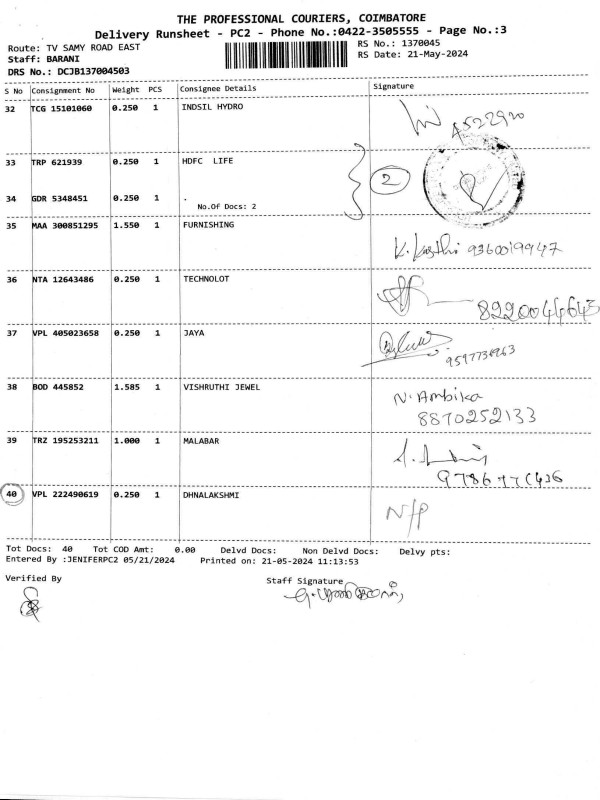 THE PROFESSIONAL COURIERS, COIMBATORE
Delivery Runsheet - PC2 - Phone No.:0422-3505555 - Page No.:3
Route: TV SAMY ROAD EAST
RS No.: 1370045
Staff: BARANI
RS Date: 21-May-2024
DRS No.: DCJB137004503
S No Consignment No Weight PCS Consignee Details Signature
32 TCG 15101060 0.250 1 INDSIL HYDRO
33 TRP 621939 0.250 1 HDFC LIFE
2
34 GDR 5348451 0.250 1 .
No.Of Docs: 2
35 MAA 300851295 1.550 1 FURNISHING
9360019947
36 NTA 12643486 0.250 1 TECHNOLOT
8220044643
37 VPL 405023658 0.250 1 JAYA
38 BOD 445852 1.585 1 VISHRUTHI JEWEL
N. Ambika
8870252133
39 TRZ 195253211 1.000 1 MALABAR
40 VPL 222490619 0.250 1 DHNALAKSHMI
N/P
Tot Docs: 40 Tot COD Amt: 0.00 Delvd Docs: Non Delvd Docs: Delvy pts:
Entered By :JENIFERPC2 05/21/2024 Printed on: 21-05-2024 11:13:53
Verified By
Staff Signature